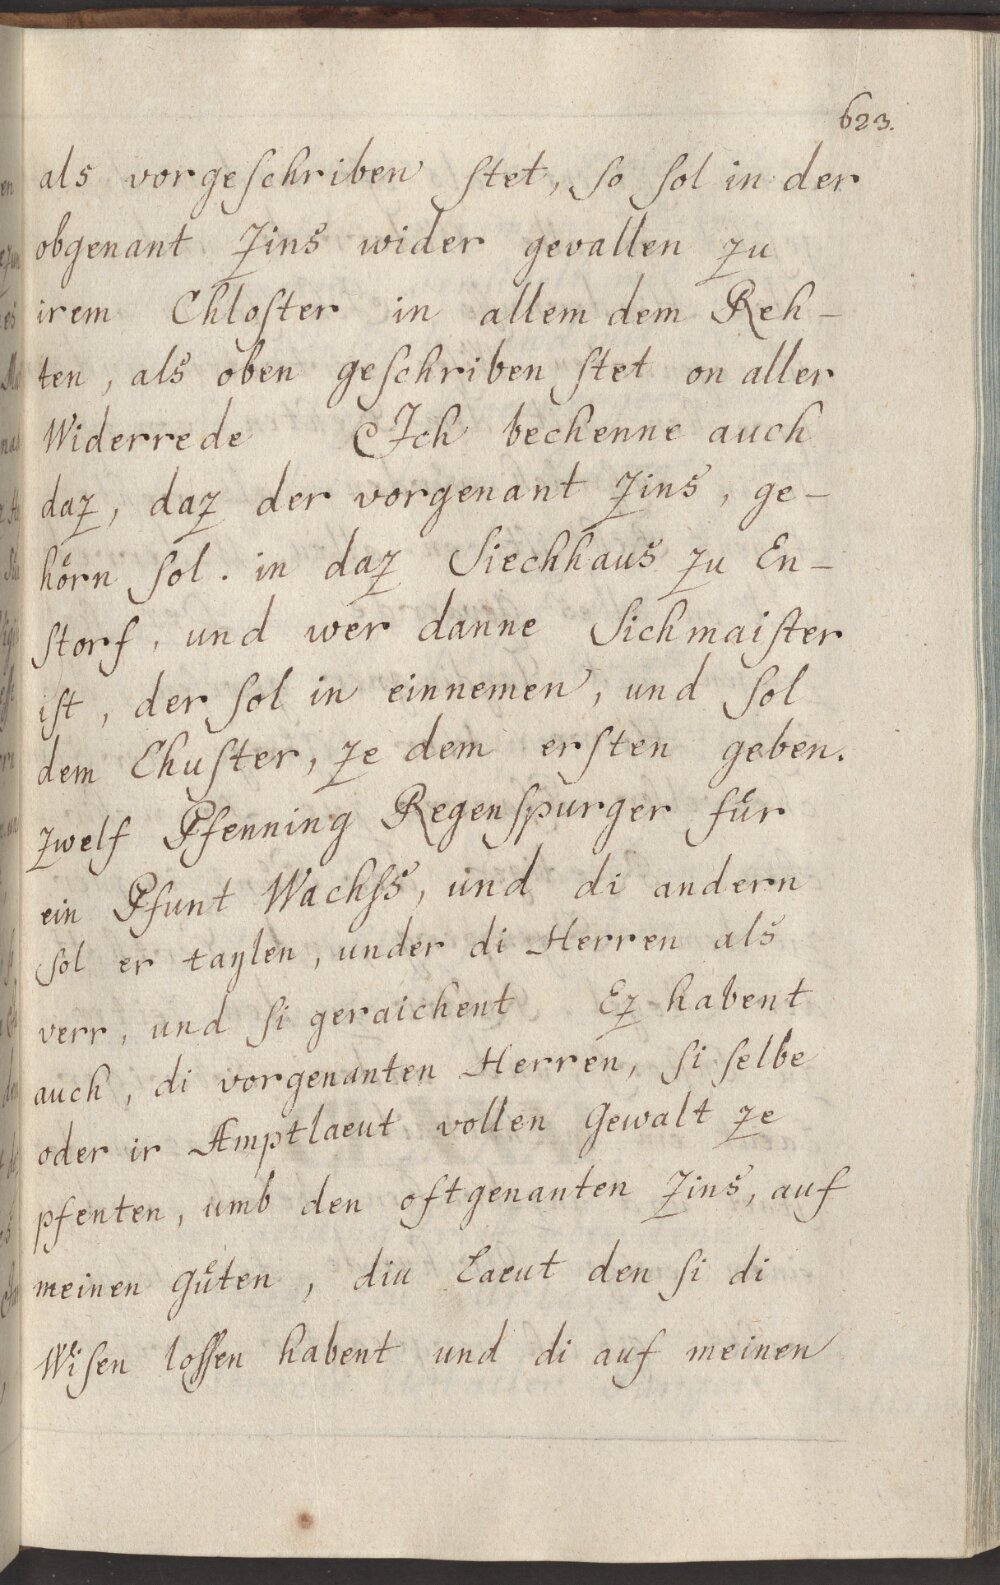 623.
als vorgeschriben stet, so sol in der
obgenant Zins wider gevallen zu
irem Chloster in allem dem Reh-
ten, als oben geschriben stet on aller
Widerrede Ich bechenne auch
daz, daz der vorgenant Zins, ge-
hörn sol. in daz Siechhaus zu En-
storf, und wer danne Sichmaister
ist, der sol in einnemen, und sol
dem Chuster, ze dem ersten geben.
zwelf Pfenning Regenspurger für
ein Pfunt Wachss, und di andern
sol er taylen, under di Herren als
verr, und si geraichent Ez habent
auch, di vorgenanten Herren, si selbe
oder ir Amptlaeut vollen Gewalt ze
pfenten, umb den oftgenanten Zins, auf
meinen Güten, diu Laeut den si di
Wisen lossen habent und di auf meinen